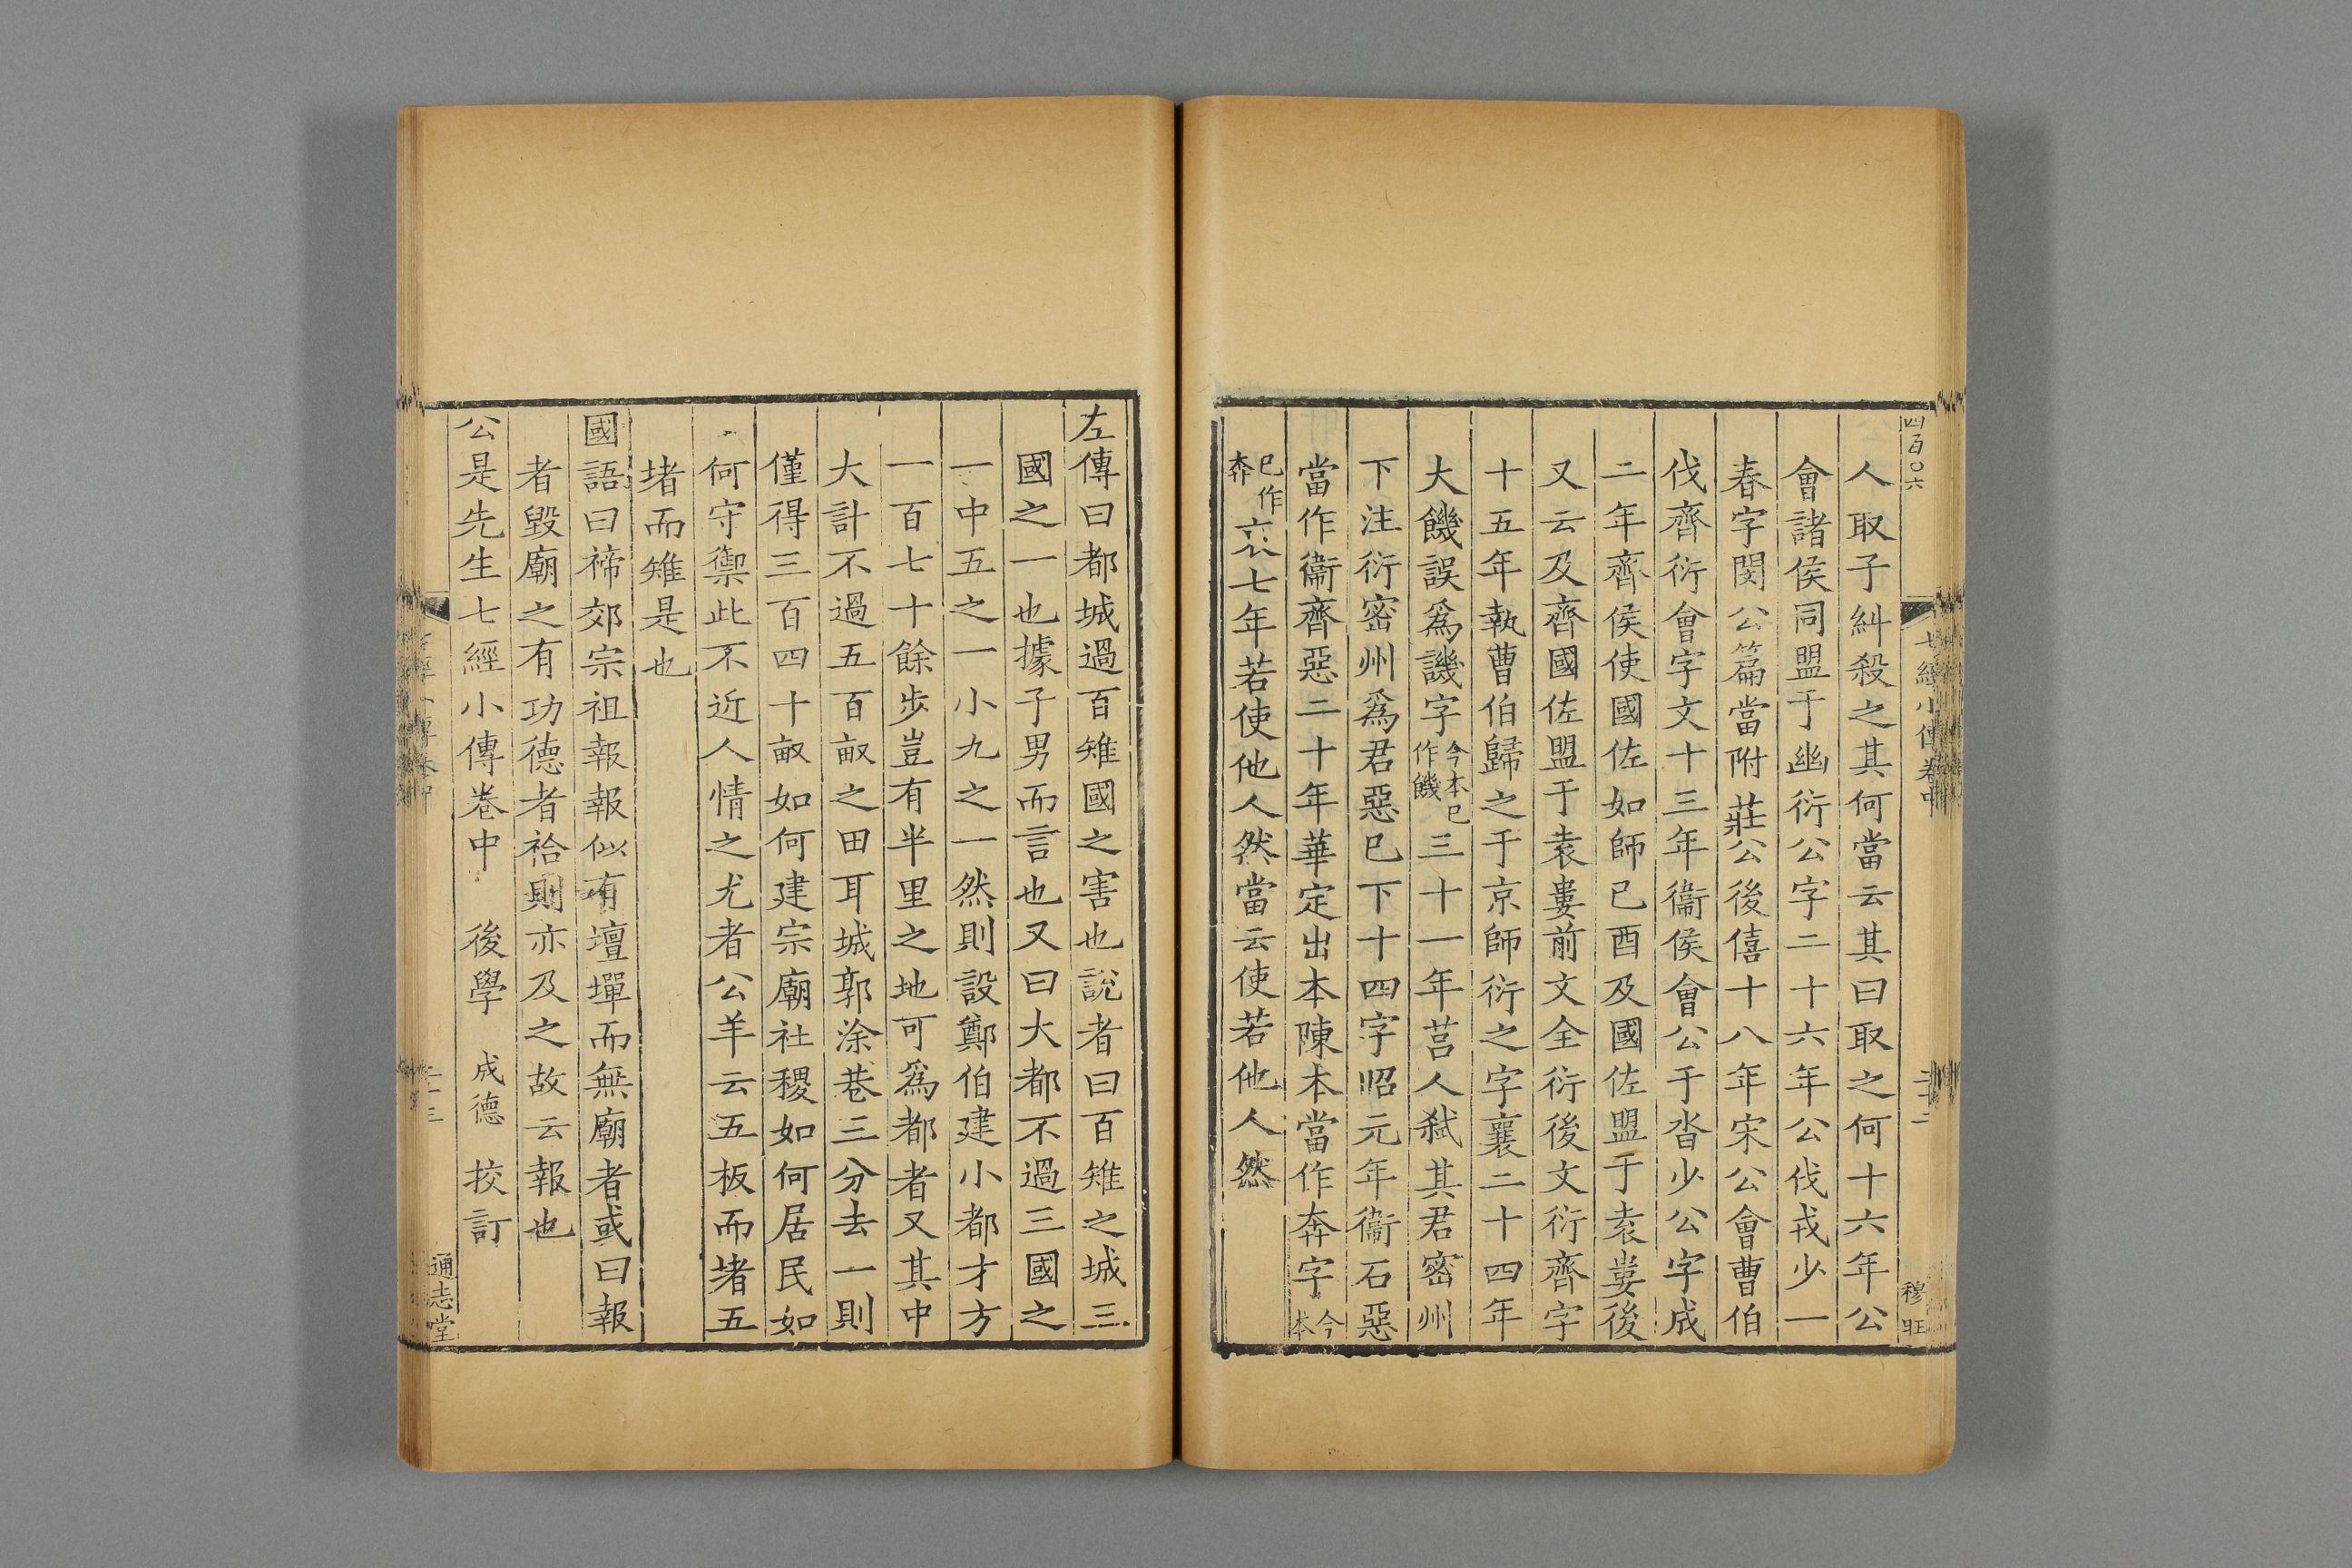 四百〇六
七經小傳卷中
穆旺
人取子糾殺之其何當云其曰取之何十六年公
會諸侯同盟于幽衍公字二十六年公伐戎少一
春字閔公篇當附莊公後僖十八年宋公會曹伯
伐齊衍會字文十三年衞侯會公于沓少公字成
二年齊侯使國佐如師已酉及國佐盟于袁婁後
又云及齊國佐盟于袁婁前文全衍後文衍齊字
十五年執曹伯歸之于京師衍之字襄二十四年
大饑誤爲譏字今本已作饑三十一年莒人弑其君密州
下注衍密州爲君惡已下十四字昭元年衞石惡
當作衞齊惡二十年華定出本陳本當作奔字今本
已作奔哀七年若使他人然當云使若他人然
左傳曰都城過百雉國之害也說者曰百雉之城三
國之一也據子男而言也又曰大都不過三國之
一中五之一小九之一然則設鄭伯建小都才方
一百七十餘步豈有半里之地可爲都者又其中
大計不過五百畝之田耳城郭涂巷三分去一則
僅得三百四十畝如何建宗廟社稷如何居民如
何守禦此不近人情之尤者公羊云五板而堵五
堵而雉是也
國語曰禘郊宗祖報報似有壇墠而無廟者或曰報
者毀廟之有功德者祫則亦及之故云報也
公是先生七經小傳卷中 後學 成德 挍訂
通志堂